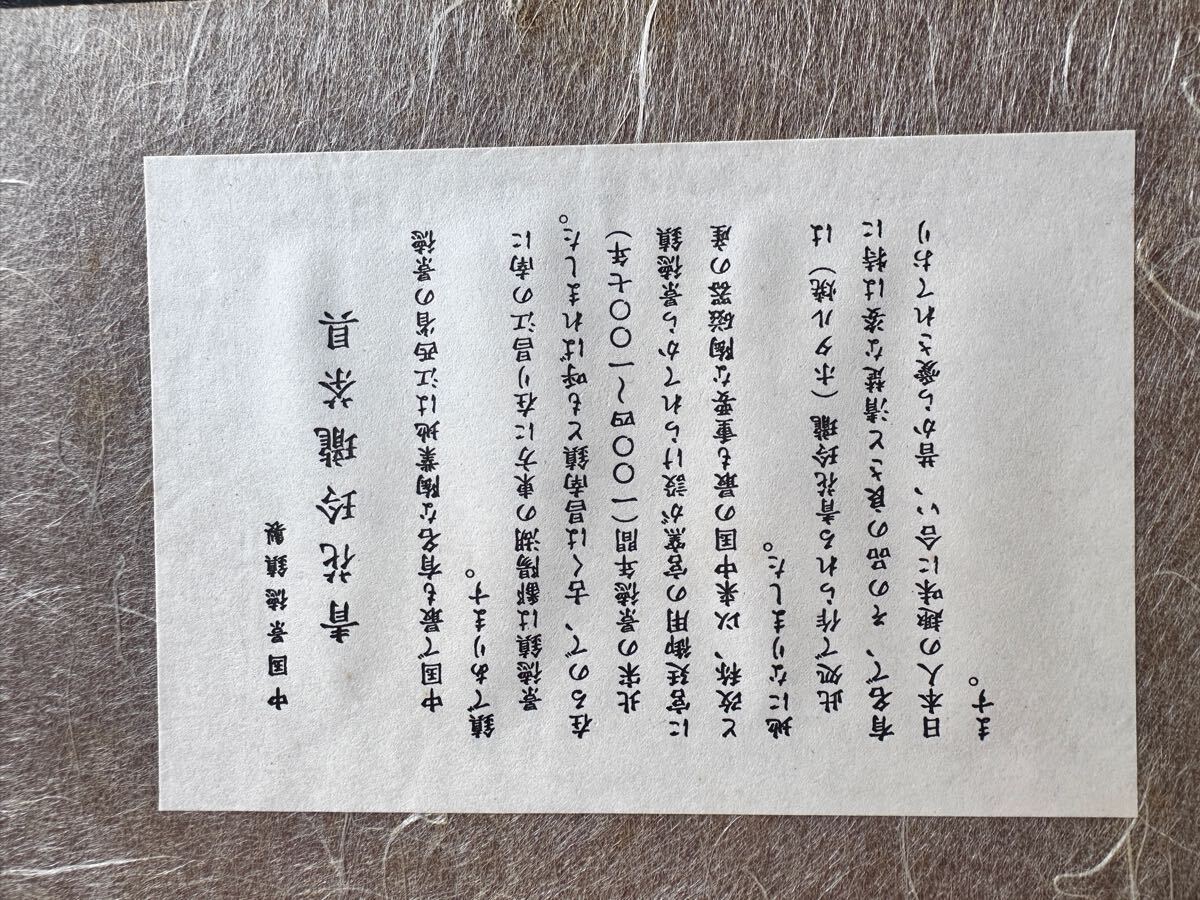 中国景徳鎮製
青花玲瓏茶具
中国で最も有名な陶業地は江西省の景徳
鎮であります。
景徳鎮は鄱陽湖の東方に在り昌江の南に
在るので、古くは昌南鎮とも呼ばれました。
北宋の景徳年間(一〇〇四〜一〇〇七年)
に宮廷御用の官窯が設けられてから景徳鎮
と改称、以来中国の最も重要な陶磁器の産
地になりました。
此処で作られる青花玲瓏(ホタル焼)は
有名で、その品の良さと清楚な姿は特に
日本人の趣味に合い、昔から愛されており
ます。